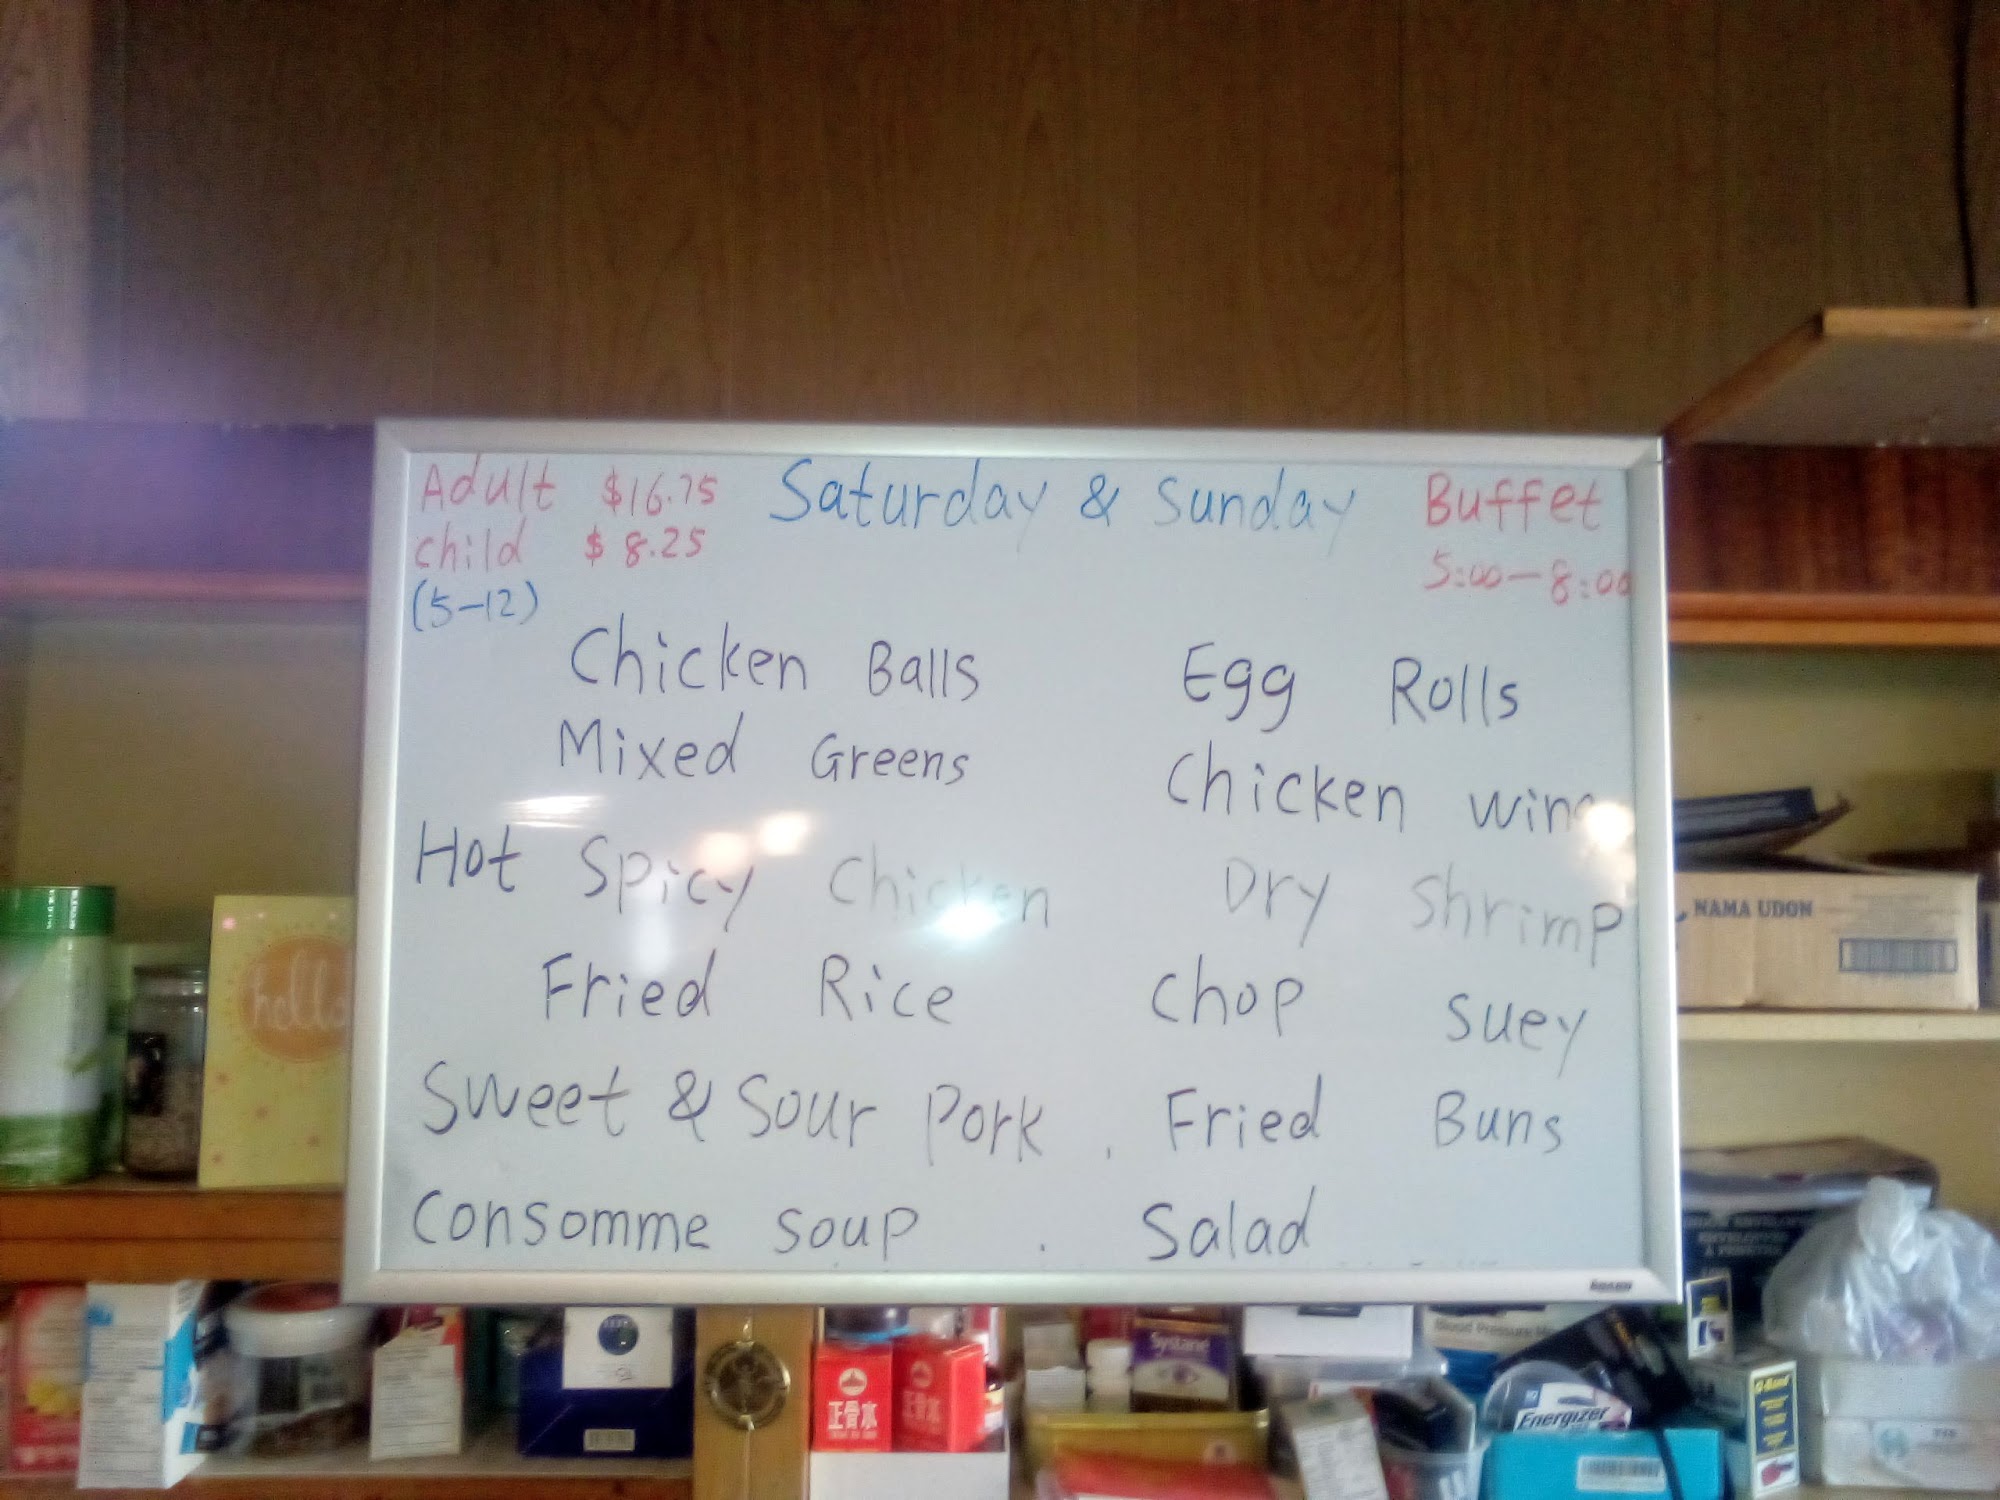 Adult $16.75 Saturday & Sunday Buffet
child $8.25 5:00-8:00
(5-12)
Chicken Balls Egg Rolls
Mixed Greens Chicken wing
Hot Spicy Chicken Dry Shrimp
Fried Rice Chop Suey
Sweet & Sour Pork Fried Buns
Consomme soup Salad
NAMA UDON
hello
正骨水
正骨水
Systane
Blood Pressure
Energizer